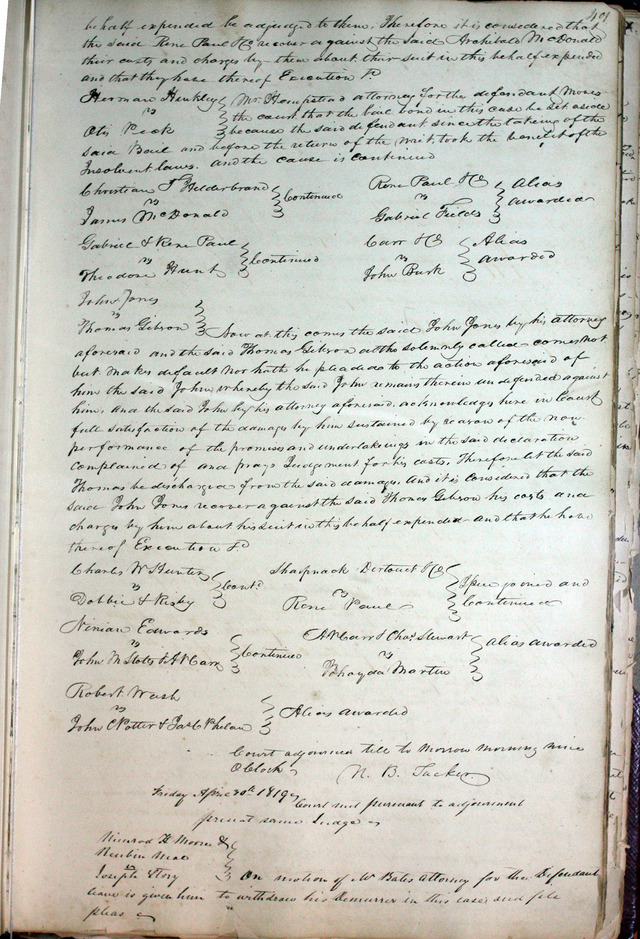 401
behalf expended be adjudged to them. Therefore it is considered that
the said Rene Paul &Co recover against the said Archibald McDonald
their costs and charges by them about their suit in this behalf expended
and that they have thereof Execution &c
Herman Hinkley
vs
Otis Peck
Mr. Hempstead attorney for the defendant moves
the court that the bail bond in this case be set aside
because the said defendant since the taking of the
said Bail and before the return of the writ, took the benefit of the
Insolvent laws. and the cause is continued
Christian T Helderbrand
vs
James McDonald
Continued
Rene Paul &Co
vs
Gabriel Fields
Alias
awarded
Gabriel & Rene Paul
vs
Theodore Hunt
Continued
Carr &Co
vs
John Burk
Alias
awarded
John Jones
vs
Thomas Gibson
Now at this comes the said John Jones by his attorney
aforesaid and the said Thomas Gibson altho solemnly called comes not
but makes default nor hath he pleaded to the action aforesaid of
him the said John, whereby the said John remains therein undefended against
him. And the said John by his attorney aforesaid, acknowledges here in Court
full satisfaction of the damages by him sustained by reason of the non
performance of the promises and undertakings in the said declaration
complained of and prays Judgement for his costs, Therefore let the said
Thomas be discharged from the said damages. And it is considered that the
said John Jones recover against the said Thomas Gibson his costs and
charges by him about his suit in this behalf expended and that he have
thereof Execution &c
Charles W Hunter
vs
Dobbie & Kisby
Cont.d
Sharpnack Dertouet &Co
vs
Rene Paul
Issue joined and
Continued
Ninian Edwards
vs
John M Stotts & A W Carr
Continued
A W Carr & Chas Stewart
vs
Martin
Alias awarded
Robert Wash
vs
John C Potter & Jas C Phelan
Alias awarded
Court adjourned till to Morrow morning nine
OClock
N. B. Tucker
Friday April 30th 1819
Court met pursuant to adjournment
present same Judge
Nimrod H Moore &
Reubin Neal
vs
Joseph Story
On motion of Mr Bates Attorney for the Defendant
leave is given him to withdraw his Demurrer in this case and file
pleas